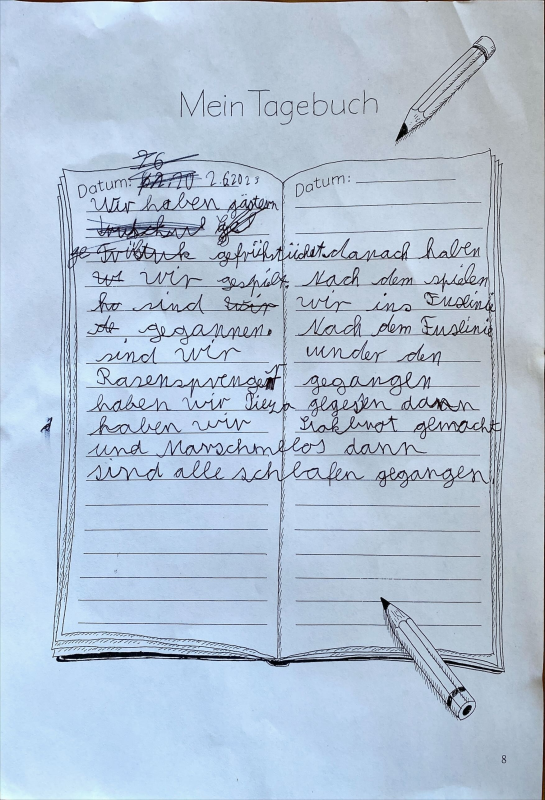 Mein Tagebuch
Datum: 2.6 2023 Datum:
Wir haben gästern
Früstuk gefrühstüchst danach haben
wir gespielt. Nach dem spielen
sind wir ins Fuslinie
gegannen. Nach dem Fuslinie
sind wir under den
Rasensprenger gegangen
haben wir Pieza gegesen dann
haben wir Stokbrot gemacht
und Marschmelos dann
sind alle schlafen gegangen.
8